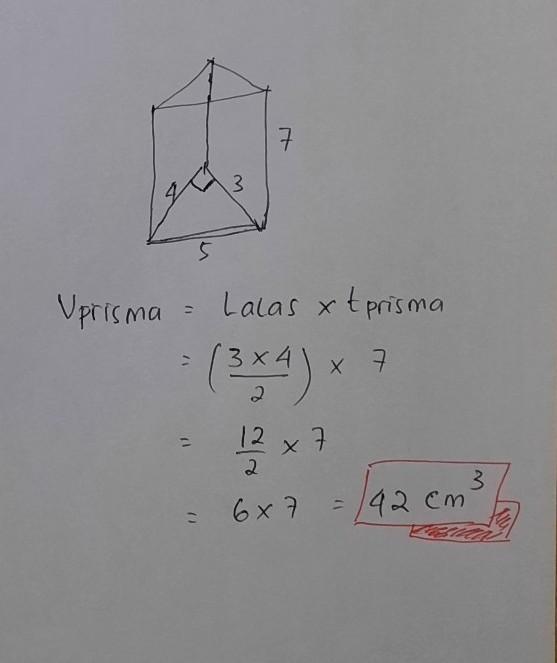 7
4 3
5
Vprisma = Lalas x tprisma
= (3 x 4 / 2) x 7
= 12/2 x 7
= 6 x 7 = 42 cm³